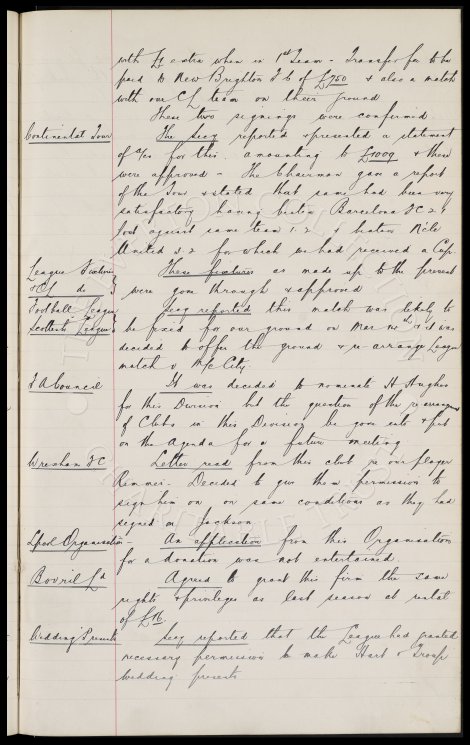 with £1 extra when in 1st Team - Transfer fee to be
paid to New Brighton F C of £750 & also a match
with our CL team on their ground
These two signings were confirmed
Continental Tour The Secy reported & presented a statement
of a/cs for this amounting to £1009 & these
were approved - The Chairman gave a report
of the Tour & stated that same had been very
satisfactory having beaten Barcelona FC 2
lost against same team 1-2 & beaten
United 3-2 for which we had received a Cup.
League Fixtures These fixtures as made up to the present
& CL do were gone through & approved
Football League Secy reported this match was likely to
Scottish League be fixed for our ground on Mar & it was
decided to offer the ground & re-arrange League
match v M/C City
F A Council It was decided to nominate H Hughes
for this Division but the question of the rearrangement
of Clubs in this Division be gone into & put
on the Agenda for a future meeting
Wrexham FC Letter read from this club re our player
Decided to give them permission to
sign him on on same conditions as they had
signed on Jackson
Lpool Organisation - An application from this Organisation
for a donation was not entertained
Bovril Ld Agreed to grant this firm the same
rights & privileges as last season at rental
of £16.
Wedding Presents Secy reported that the League had granted
necessary permission to make Hart & Troup
wedding presents